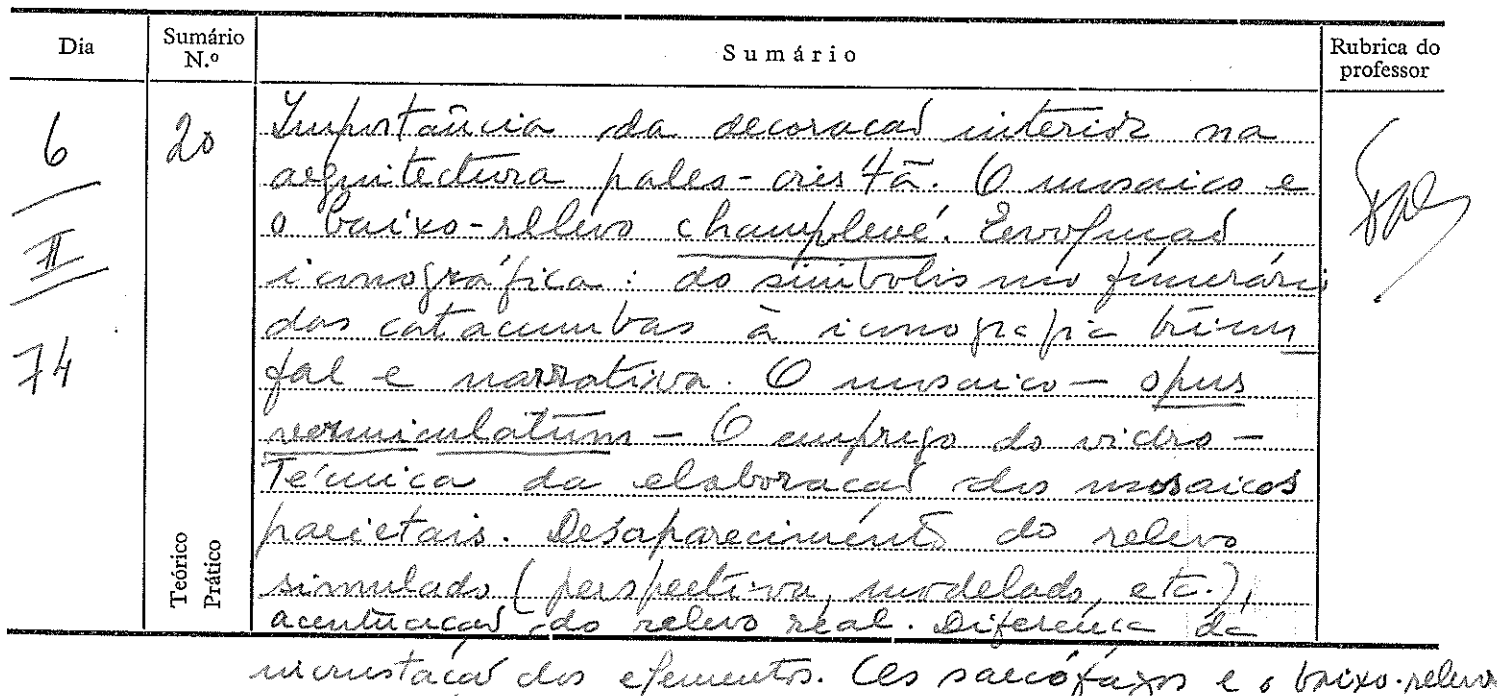 Dia
Sumário N.º
Sumário
Rubrica do professor
6
II
74
20
Teórico
Prático
Importância da decoração interior na
arquitectura paleo-cristã. O mosaico e
o baixo-relevo champlevé. Evolução
iconográfica: do simbolismo funerário
das catacumbas à iconografia triun
fal e narrativa. O mosaico — opus
vermiculatum — O emprego do vidro —
Técnica da elaboração dos mosaicos
parietais. Desaparecimento do relevo
simulado (perspectiva, modelado, etc.),
acentuação do relevo real. Diferença da
incrustação dos elementos. Os sarcófagos e o baixo-relevo